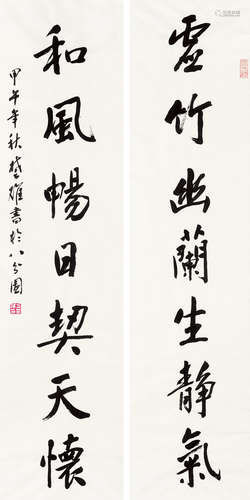 虚竹幽蘭生靜氣
和風暢日契天懷
甲午年秋楚雄書於八分園